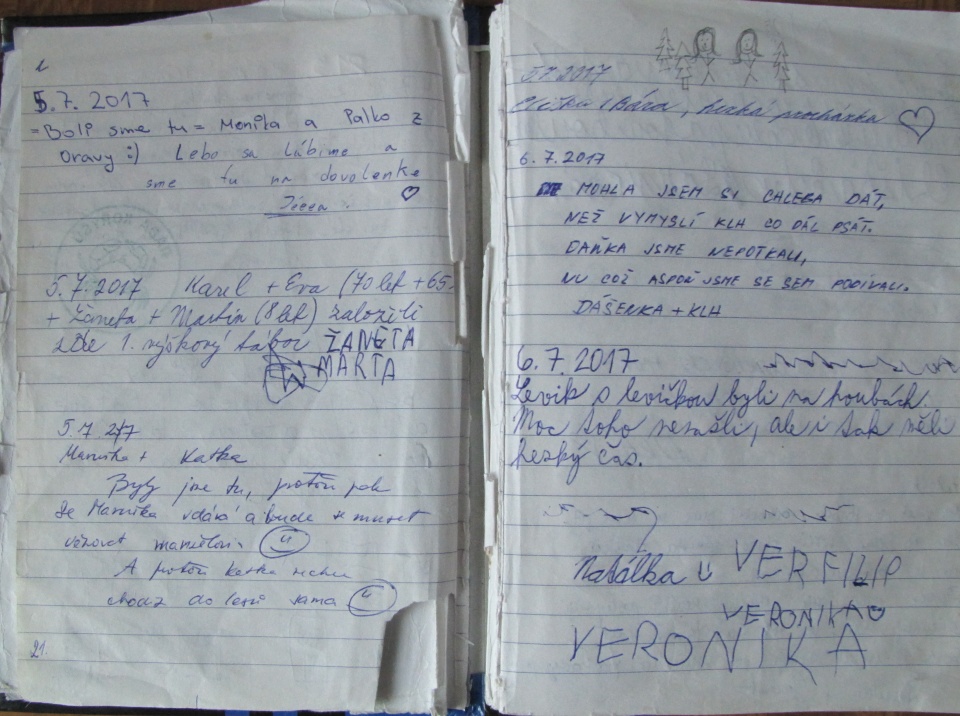 1
5.7. 2017
= Boli sme tu = Monika a Palko z
Oravy :) Lebo sa lúbime a
sme tu na dovolenke
5.7.2017 Karel + Eva (70 let + 65
+ Žaneta + Martin (8 let) založili
zde 1. výškový tábor ŽANETA
MARTA
5.7.217
Maruška + Katka
Byly jsme tu, protože pak
se Maruška vdává a bude se muset
věnovat manželovi
A protože Katka nechce
chodit do lesa sama
21.
5.7.2017
Bára, hezká procházka
6.7.2017
MOHLA JSEM SI CHLEBA DÁT,
NEŽ VYMYSLÍ KLH CO DÁL PSÁT.
DAŇKA JSME NEPOTKALI,
NU COŽ ASPOŇ JSME SE SEM PODÍVALI.
DÁŠENKA + KLH
6.7.2017
Levik s levičkou byli na houbách.
Moc toho nenašli, ale i tak měli
hezký čas.
Natálka VER FILIP
VERONIKA
VERONIKA